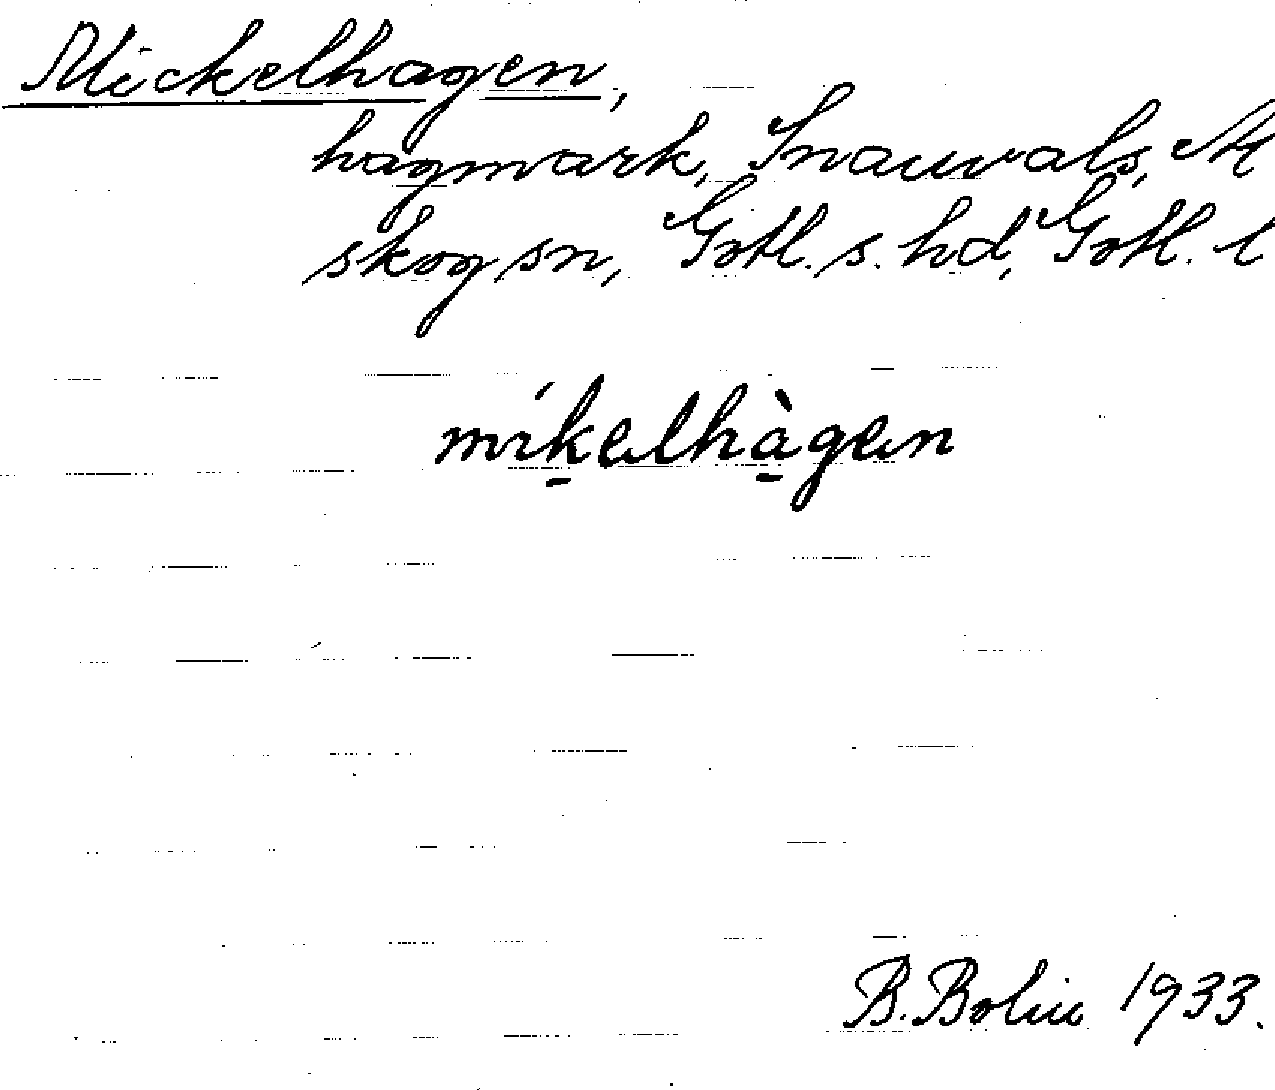 Mickelhagen,
hagmark, Snauvals,
skog sn, Gotl. s. hd, Gotl. l
mikelhàgen
B. Bolin 1933.